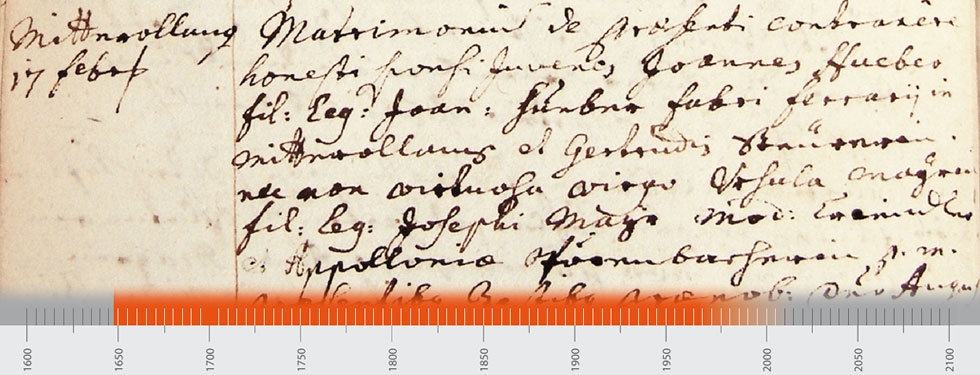 Mitterollang Matrimonium de praesenti contraxere
17 febr. honesti sponsi Juvenis Joannes Hueber
fil: leg: Joan: Hueber fabri ferrarij in
Mitterollang et Gertrudis
nec non virtuosa virgo Ursula Mayrin
fil: leg: Josephi Mayr Mod:
Appollonia p. m.
1600 1650 1700 1750 1800 1850 1900 1950 2000 2050 2100